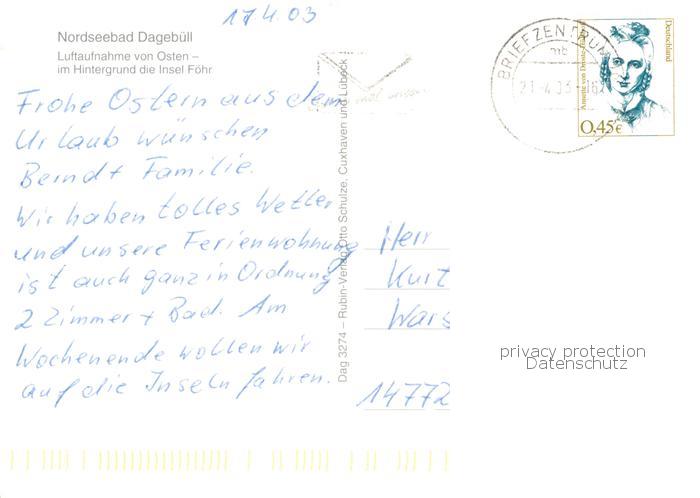 17.4.03
Nordseebad Dagebüll
Luftaufnahme von Osten –
im Hintergrund die Insel Föhr
Frohe Ostern aus dem
Urlaub wünschen
Bernd + Familie.
Wir haben tolles Wetter
und unsere Ferienwohnung
ist auch ganz in Ordnung
2 Zimmer + Bad. Am
Wochenende wollen wir
auf die Inseln fahren.
Dag 3274 – Rubin-Verlag Otto Schulze, Cuxhaven und Lübeck
BRIEFZENTRUM
21.-4.03-16
Annette von
Deutschland
0,45€
Herr
Kurt
Wars
14772
privacy protection
Datenschutz